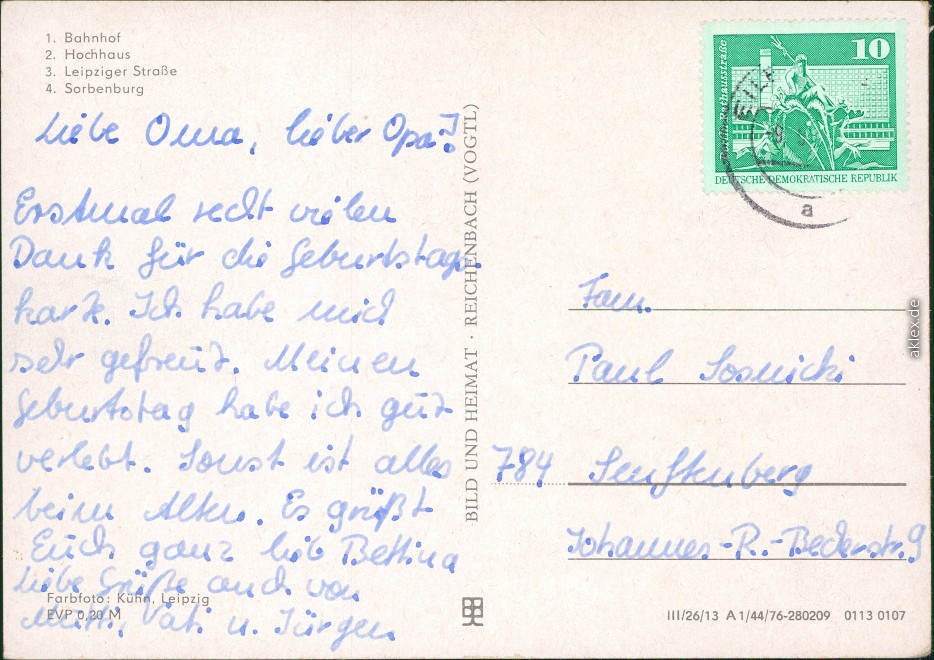 1. Bahnhof
2. Hochhaus
3. Leipziger Straße
4. Sorbenburg
Liebe Oma, lieber Opa!
Erstmal recht vielen
Dank für die Geburtstags-
karte. Ich habe mich
sehr gefreut. Meinen
Geburtstag habe ich gut
verlebt. Sonst ist alles
beim Alten. Es grüßt
Euch ganz lieb Bettina
Liebe Grüße auch von
Mutti, Vati u. Jürgen
Farbfoto: Kühn, Leipzig
EVP 0,20 M
BILD UND HEIMAT · REICHENBACH (VOGTL)
10
DEUTSCHE DEMOKRATISCHE REPUBLIK
a
Fam.
Paul Sosnicki
784 Senftenberg
Johannes-R.-Becherstr. 9
III/26/13 A 1/44/76-280209 0113 0107
aklex.de